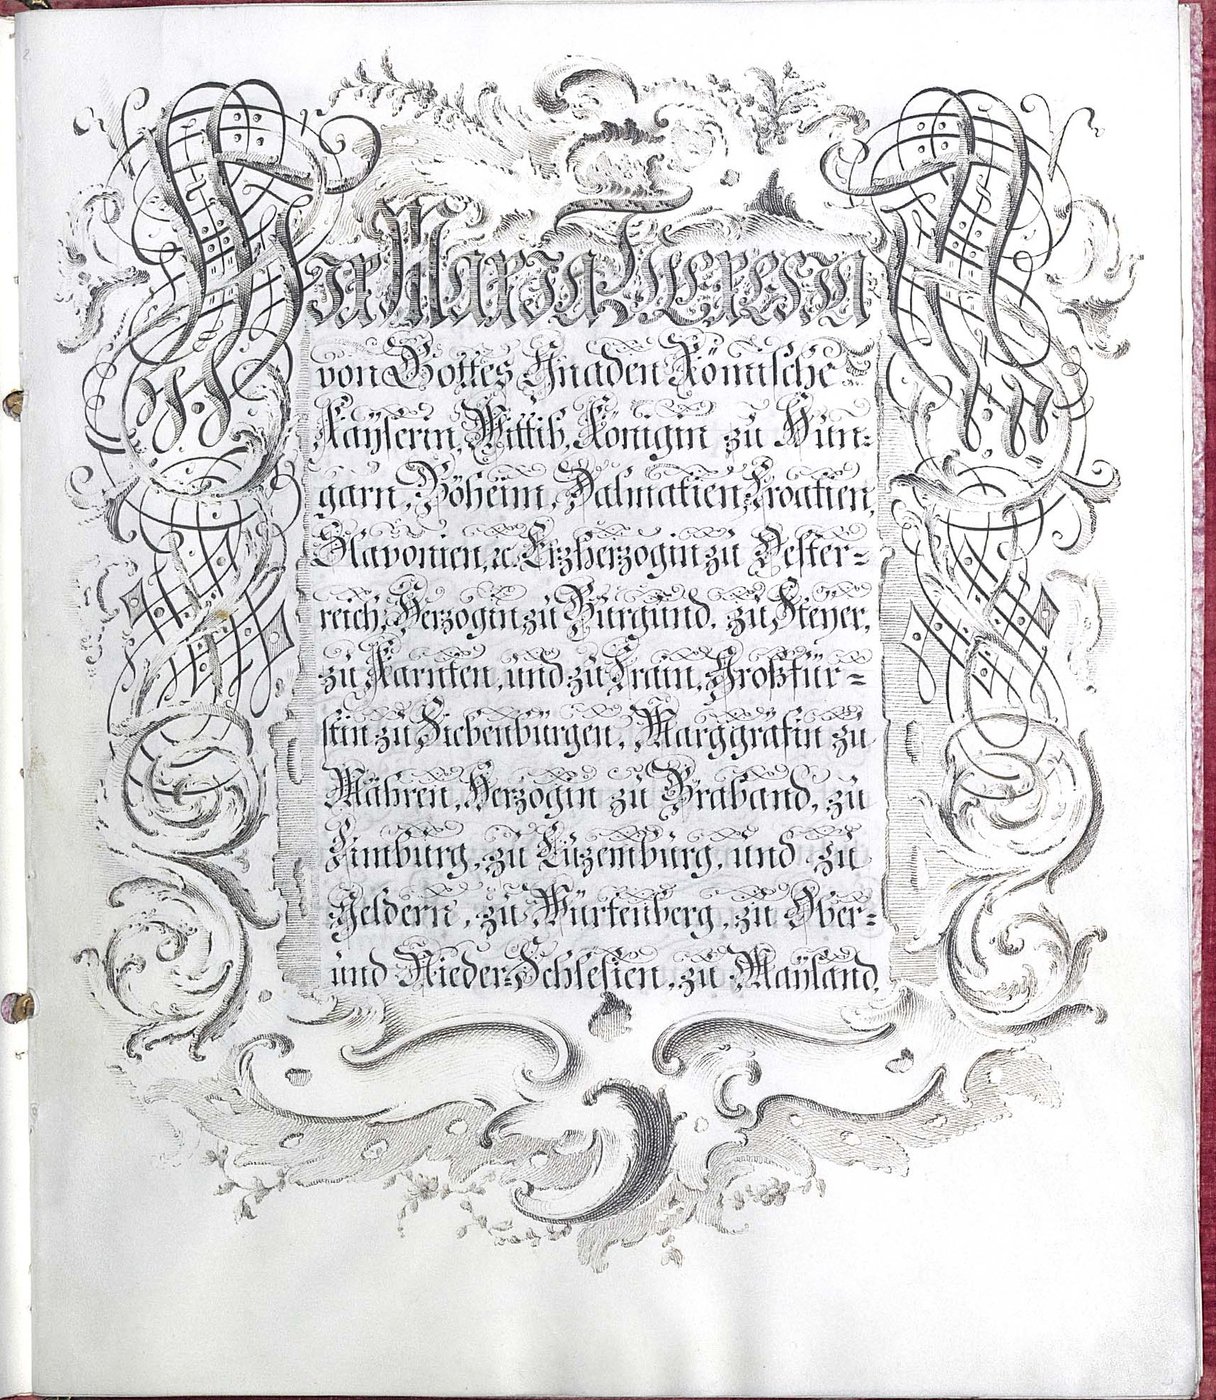 Wir Maria Theresia
von Gottes Gnaden Römische
Kaÿserin, Wittib, Königin zu Hun=
garn, Böheim, Dalmatien, Croatien,
Slavonien, ꝛc. Erzherzogin zu Oester=
reich, Herzogin zu Burgund, zu Steyer,
zu Kärnten, und zu Crain, Großfür=
stin zu Siebenbürgen, Marggräfin zu
Mähren, Herzogin zu Braband, zu
Limburg, zu Luzemburg, und zu
Geldern, zu Würtenberg, zu Ober=
und Nieder=Schlesien, zu Mayland,